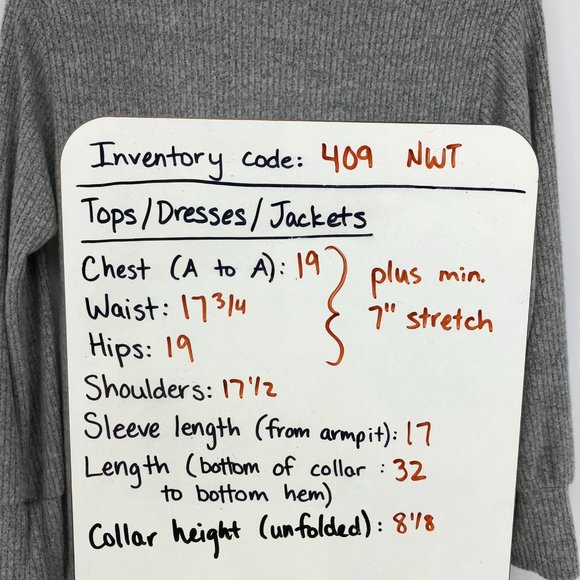 Inventory code: 409 NWT
Tops/Dresses/Jackets
Chest (A to A): 19
Waist: 17 3/4
Hips: 19
plus min.
7" stretch
Shoulders: 17 1/2
Sleeve length (from armpit): 17
Length (bottom of collar : 32
to bottom hem)
Collar height (unfolded): 8 1/8